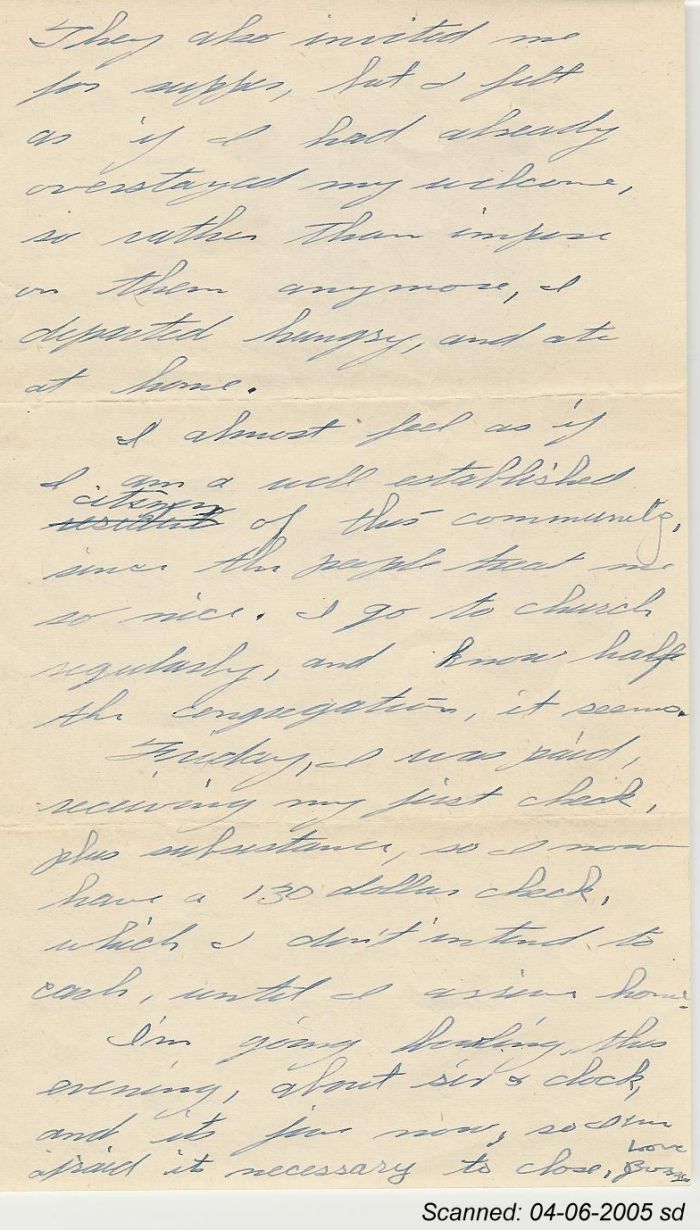 They also invited me
for supper, but I felt
as if I had already
overstayed my welcome,
so rather than impose
on them anymore, I
departed hungry, and ate
at home.
I almost feel as if
I am a well established
citizen
resident of this community,
since the people treat me
so nice. I go to church
regularly, and know half
the congregation, it seems.
Friday, I was paid,
receiving my first check,
plus subsistance, so I now
have a 130 dollar check,
which I don't intend to
cash, until I arrive home.
I'm going bowling this
evening, about six o clock,
and its five now, so I'm
afraid its necessary to close,
Love
Scanned: 04-06-2005 sd